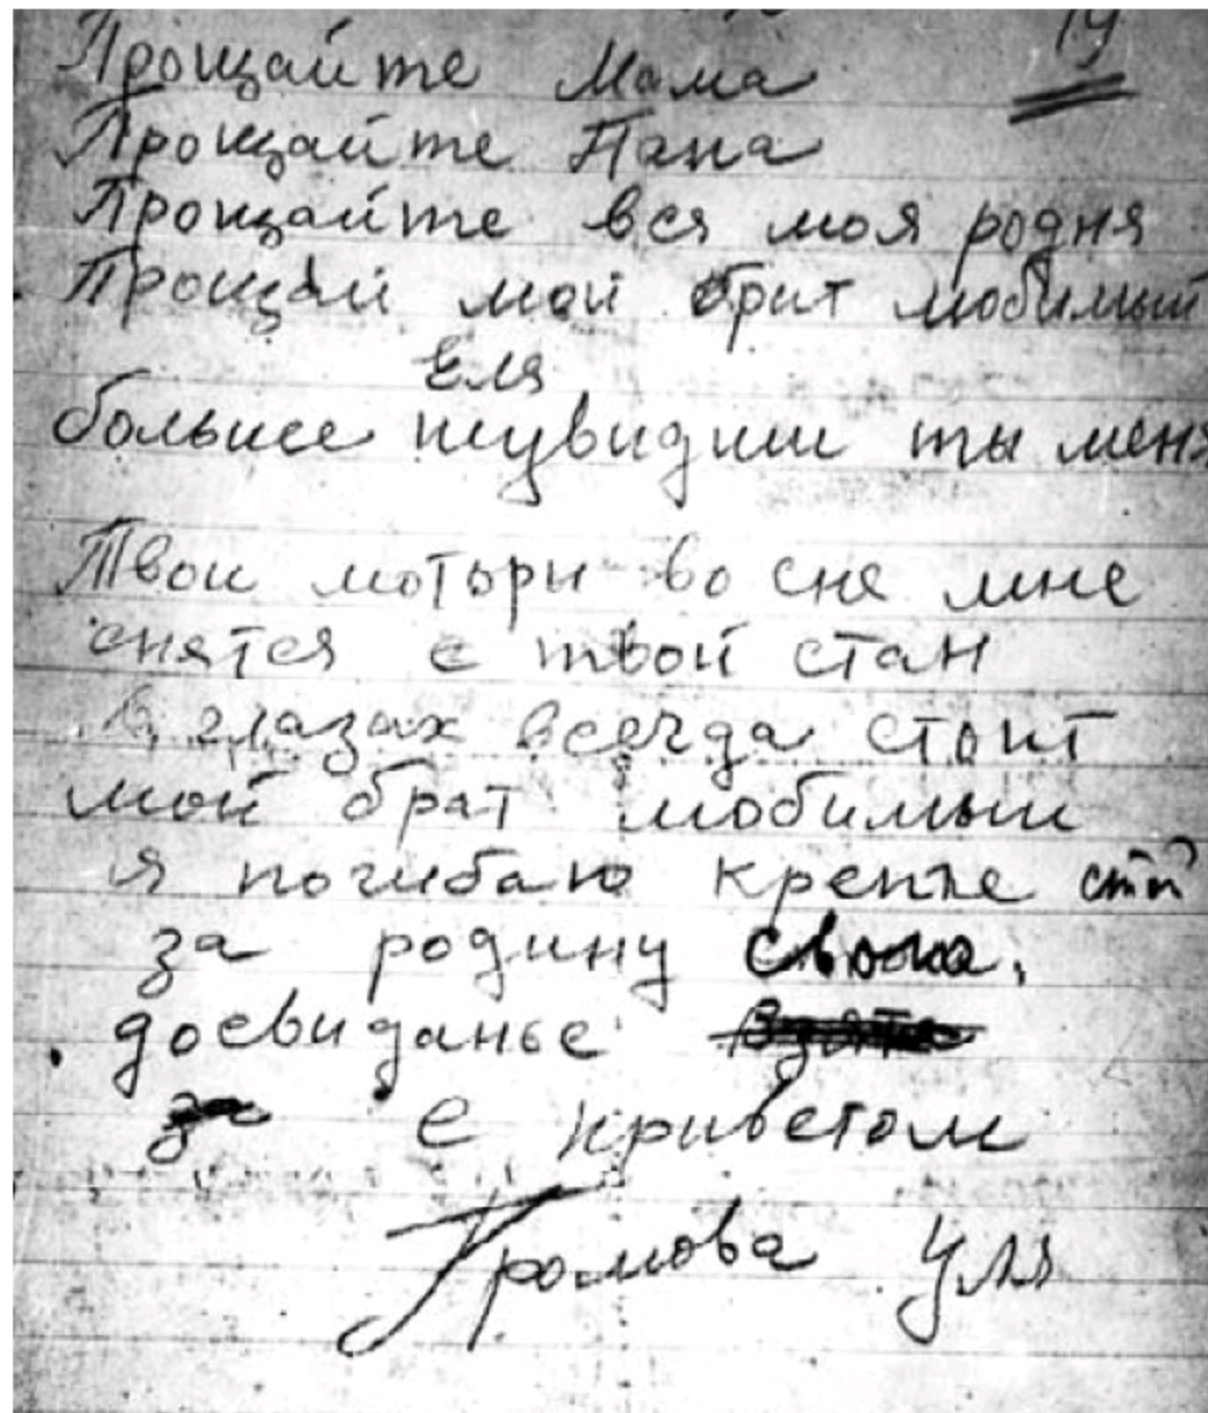 19
Прощайте Мама
Прощайте Папа
Прощайте вся моя родня
Прощай мой брат любимый
Еля
больше неувидиш ты меня
Твои моторы во сне мне
снятся с твой стан
в глазах всегда стоит
мой брат любимыи
я погибаю крепче стой
за родину свою.
досвиданье
за с приветом
Громова Уля